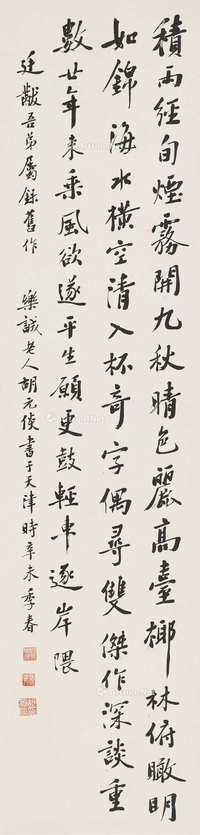 積雨經旬煙霧開九秋晴色麗高臺椰林俯瞰明
如錦海水橫空清入杯奇字偶尋雙傑作深談重
數廿年來乘風欲遂平生願更鼓輕巾逐岸隈
廷黻吾弟屬錄舊作
樂誠老人胡元倓書于天津時辛未季春